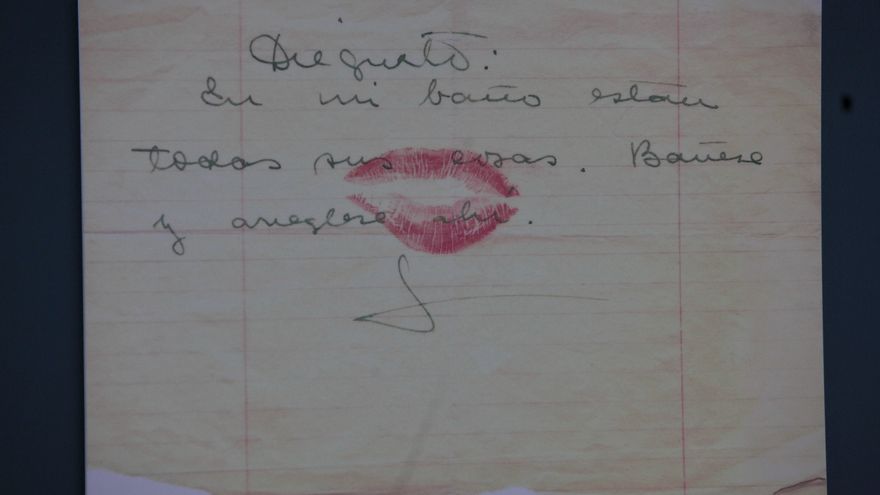 Dieguito:
En mi baño están
todas sus cosas. Bañese
y arreglese ahí.